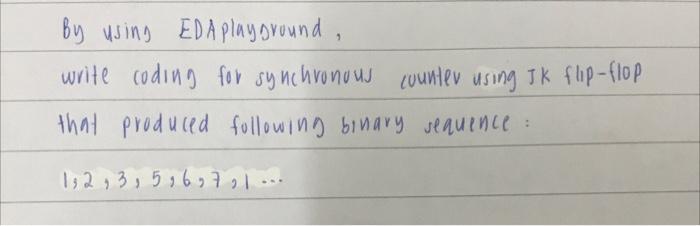 By using EDAplayground,
write coding for synchronous counter using JK flip-flop
that produced following binary sequence :
1, 2, 3, 5, 6, 7, 1 ...